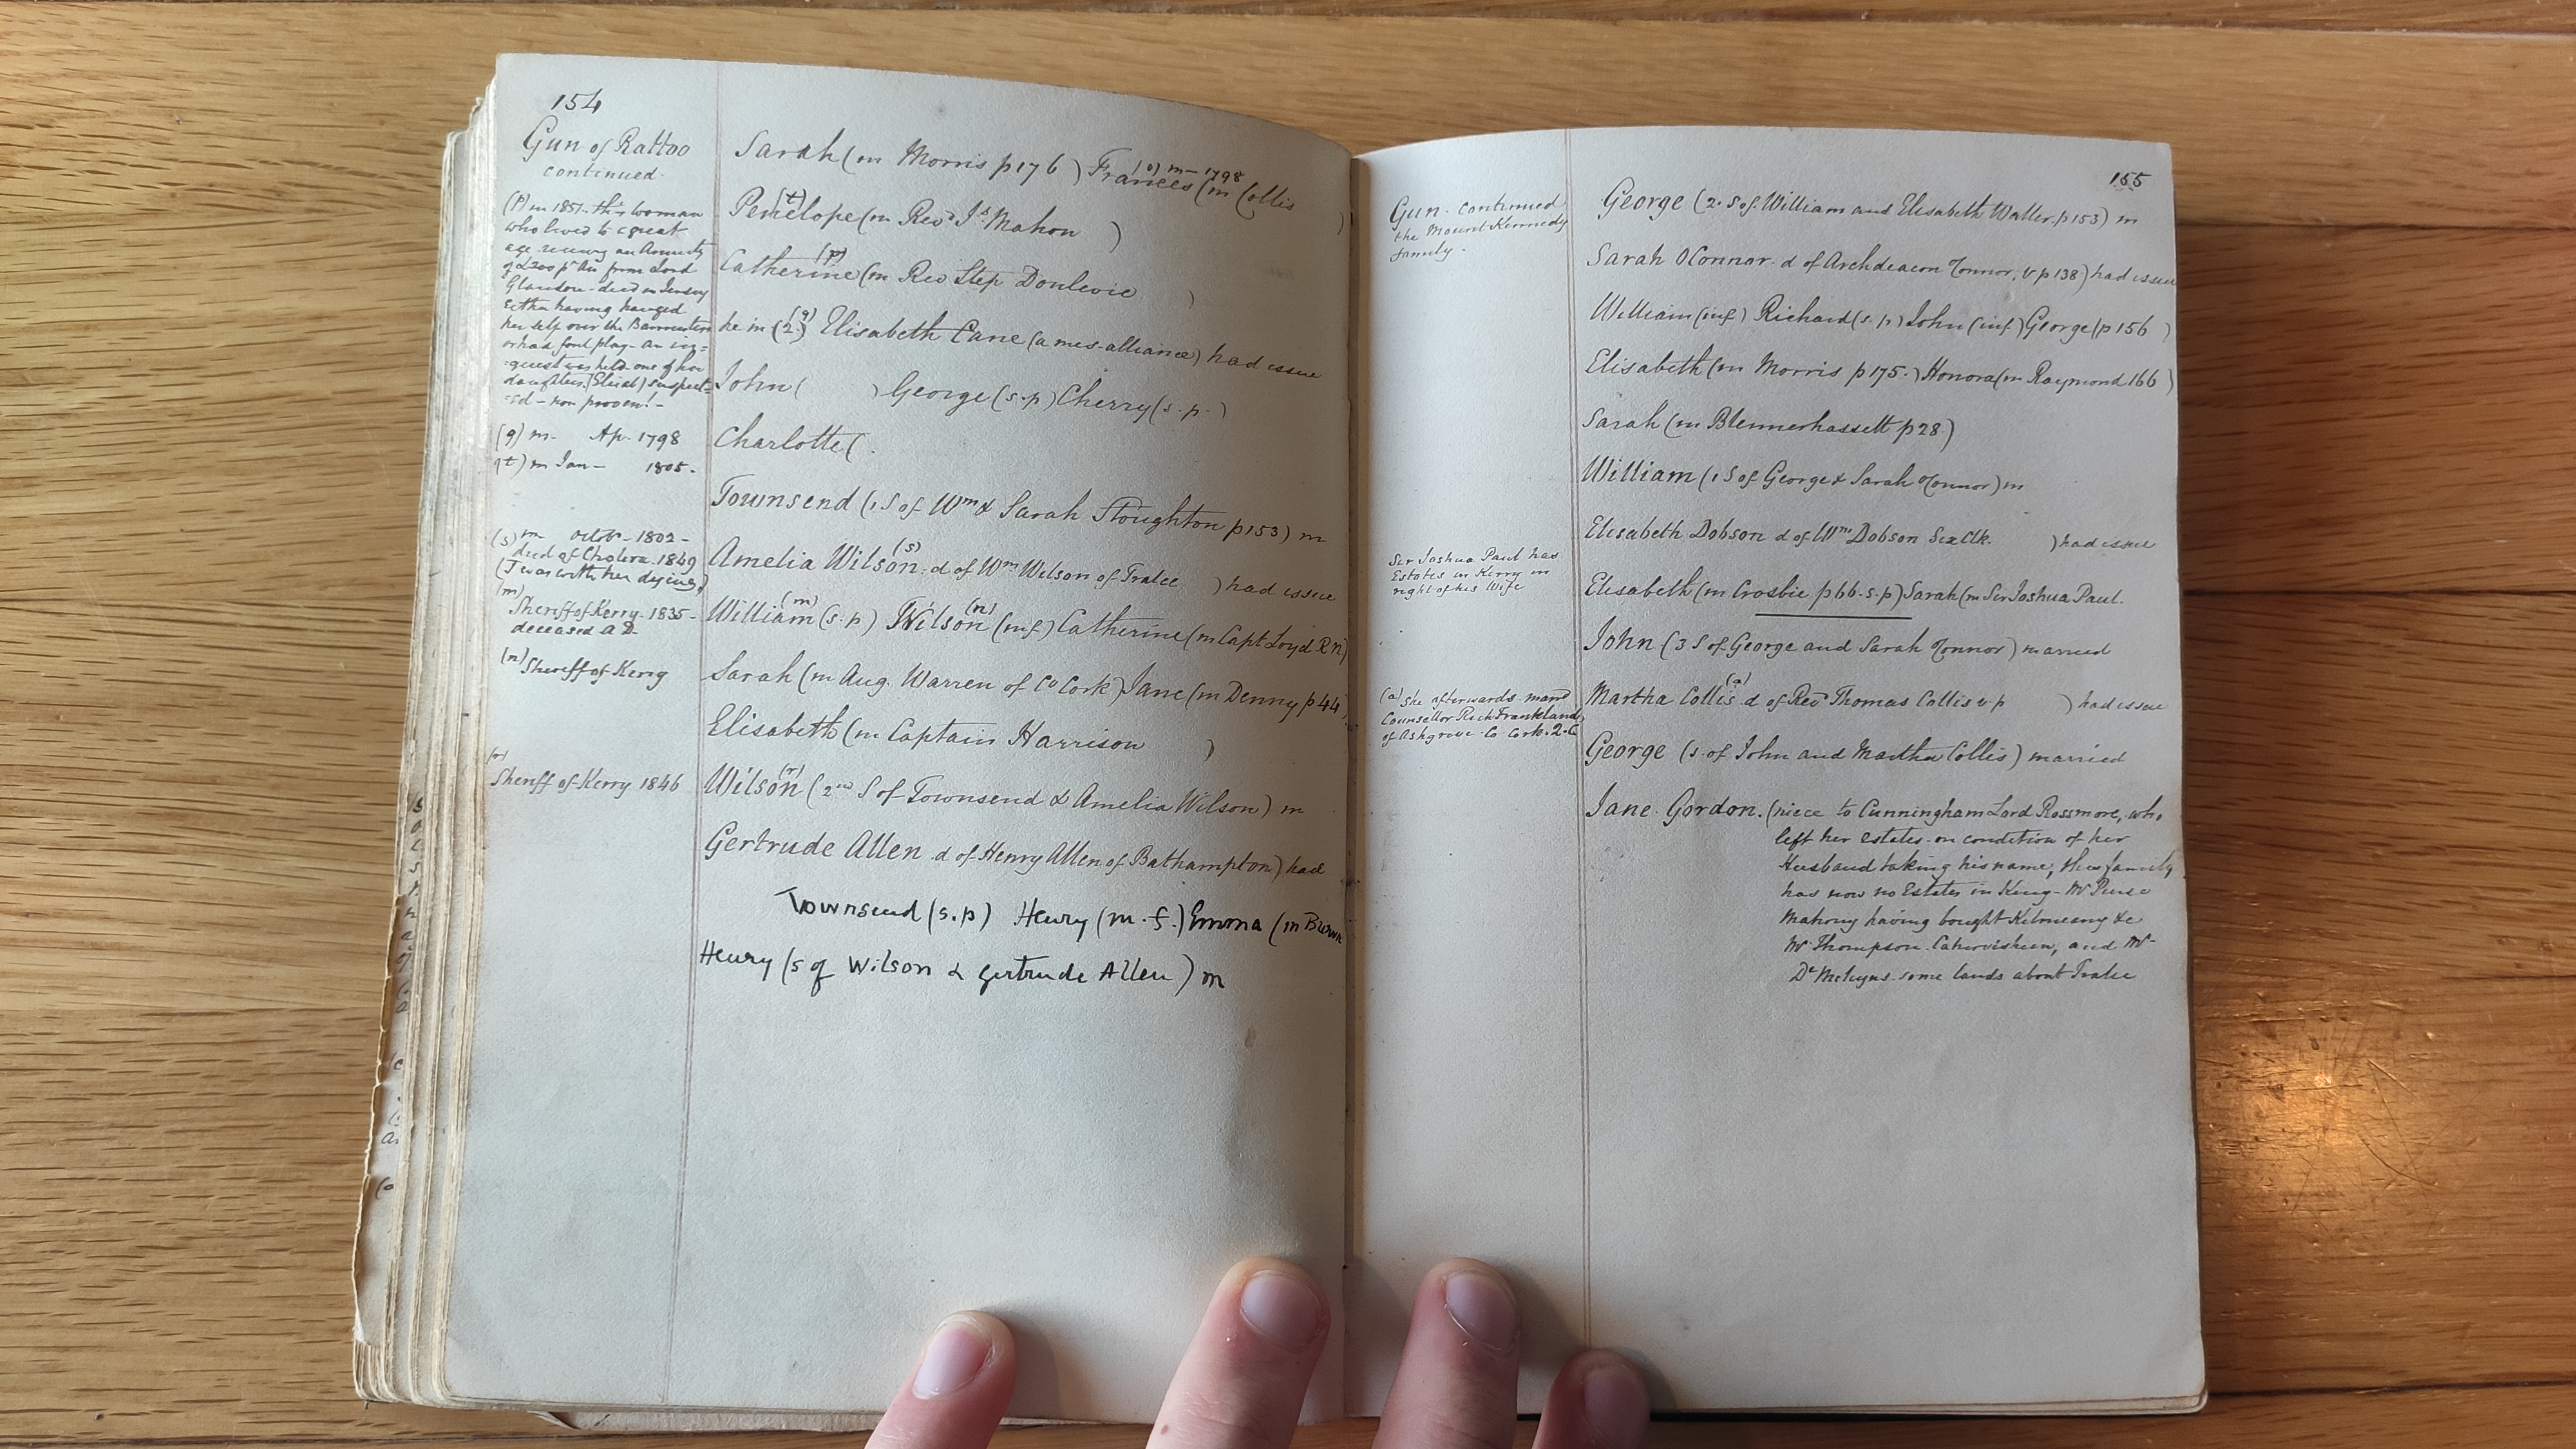 154
Gun of Rattoo
continued
(p) in 1851. this woman
who lived to a great
age recievg an Annuity
of £200 pr An from Lord
Glandore - died in Jersey
Either having hanged
her self over the Bannisters
or had foul play - an in=
=quest was held one of her
daughters (Eliza) suspect=
=ed - non proven! -
(q) m. Ap. 1798
(t) m Jan - 1805.
(s) m Octob - 1802 -
died of Cholera. 1849
(I was with her dying)
(m)
Sheriff of Kerry. 1835 -
deceased A D.
(n) Sheriff of Kerry
(r)
Sheriff of Kerry 1846
Sarah (m Morris p 176) Frances (m Collis
(o) m - 1798
Penelope (m Revd Jd. Mahon )
(t)
Catherine (m Rev Step Donlevie )
(p)
he m (2.) Elisabeth Cane (a mes-alliance) had issue
(q)
John ( ) George (s.p) Cherry (s.p.)
Charlotte (.
Townsend (1 S of Wm & Sarah Stoughton p 153) m
Amelia Wilson. d of Wm Wilson of Tralee ) had issue
(s)
William (s.p) Wilson (inf) Catherine (m Capt Loyd R n)
(m) (n)
Sarah (m Aug. Warren of Co Cork) Jane (m Denny p 44
Elisabeth (m Captain Harrison )
Wilson (2nd S of Townsend & Amelia Wilson) m
(r)
Gertrude Allen d of Henry Allen of Bathampton) had
Townsend (s.p) Henry (m.f.) Emma (m Brown
Henry (s of Wilson & Gertrude Allen) m
155
Gun. continued
the Mount Kennedy
family.
Sir Joshua Paul has
Estates in Kerry in
right of his Wife
(a) She afterwards mard
Counsellor Rich Frankland
of Ashgrove Co Cork. Q.C
George (2. S of William and Elisabeth Waller. p 153) m
Sarah OConnor. d of Archdeacon Connor. v p 138) had issue
William (inf) Richard (s.p) John (inf) George (p 156 )
Elisabeth (m Morris p 175.) Honora (m Raymond 166 )
Sarah (m Blennerhassett p 28.)
William (1 S of George & Sarah Connor) m
Elisabeth Dobson d of Wm Dobson Six Clk. ) had issue
Elisabeth (m Crosbie p 66. s.p) Sarah (m Sir Joshua Paul.
John (3 S of George and Sarah Connor) married
Martha Collis. d of Revd Thomas Collis v. p ) had issue
(a)
George (s. of John and Martha Collis) married
Jane Gordon. (niece to Cunningham Lord Rossmore, who
left her estates on condition of her
Husband taking his name, this family
has now no Estates in Kerry - Mr Peirse
Mahony having bought Kilmeany &c
Mr Thompson. and Mr
Dd some lands about Tralee